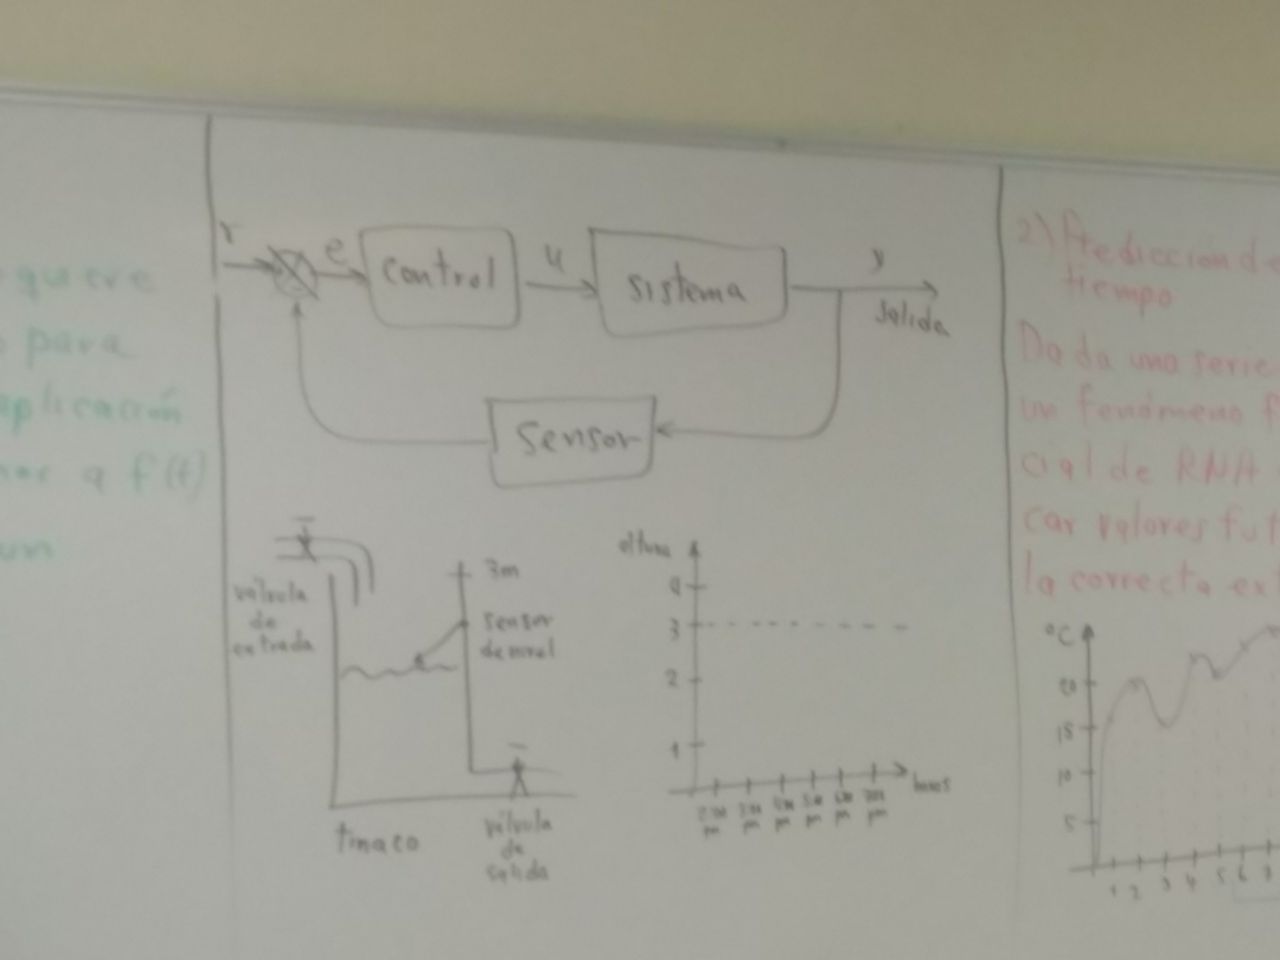 quiere
para
aplicación
a f(t)
un
r
e
control
u
sistema
y
salida
sensor
válvula
de
entrada
3m
sensor
de nivel
tinaco
válvula
de
salida
altura
4
3
2
1
2:00 3:00 4:00 5:00 6:00 7:00
pm pm pm pm pm pm
horas
2) Predicción de
tiempo
Dada una serie
un fenómeno f
cial de RNA
car valores fut
la correcta ext
°C
20
15
10
5
1 2 3 4 5 6 7